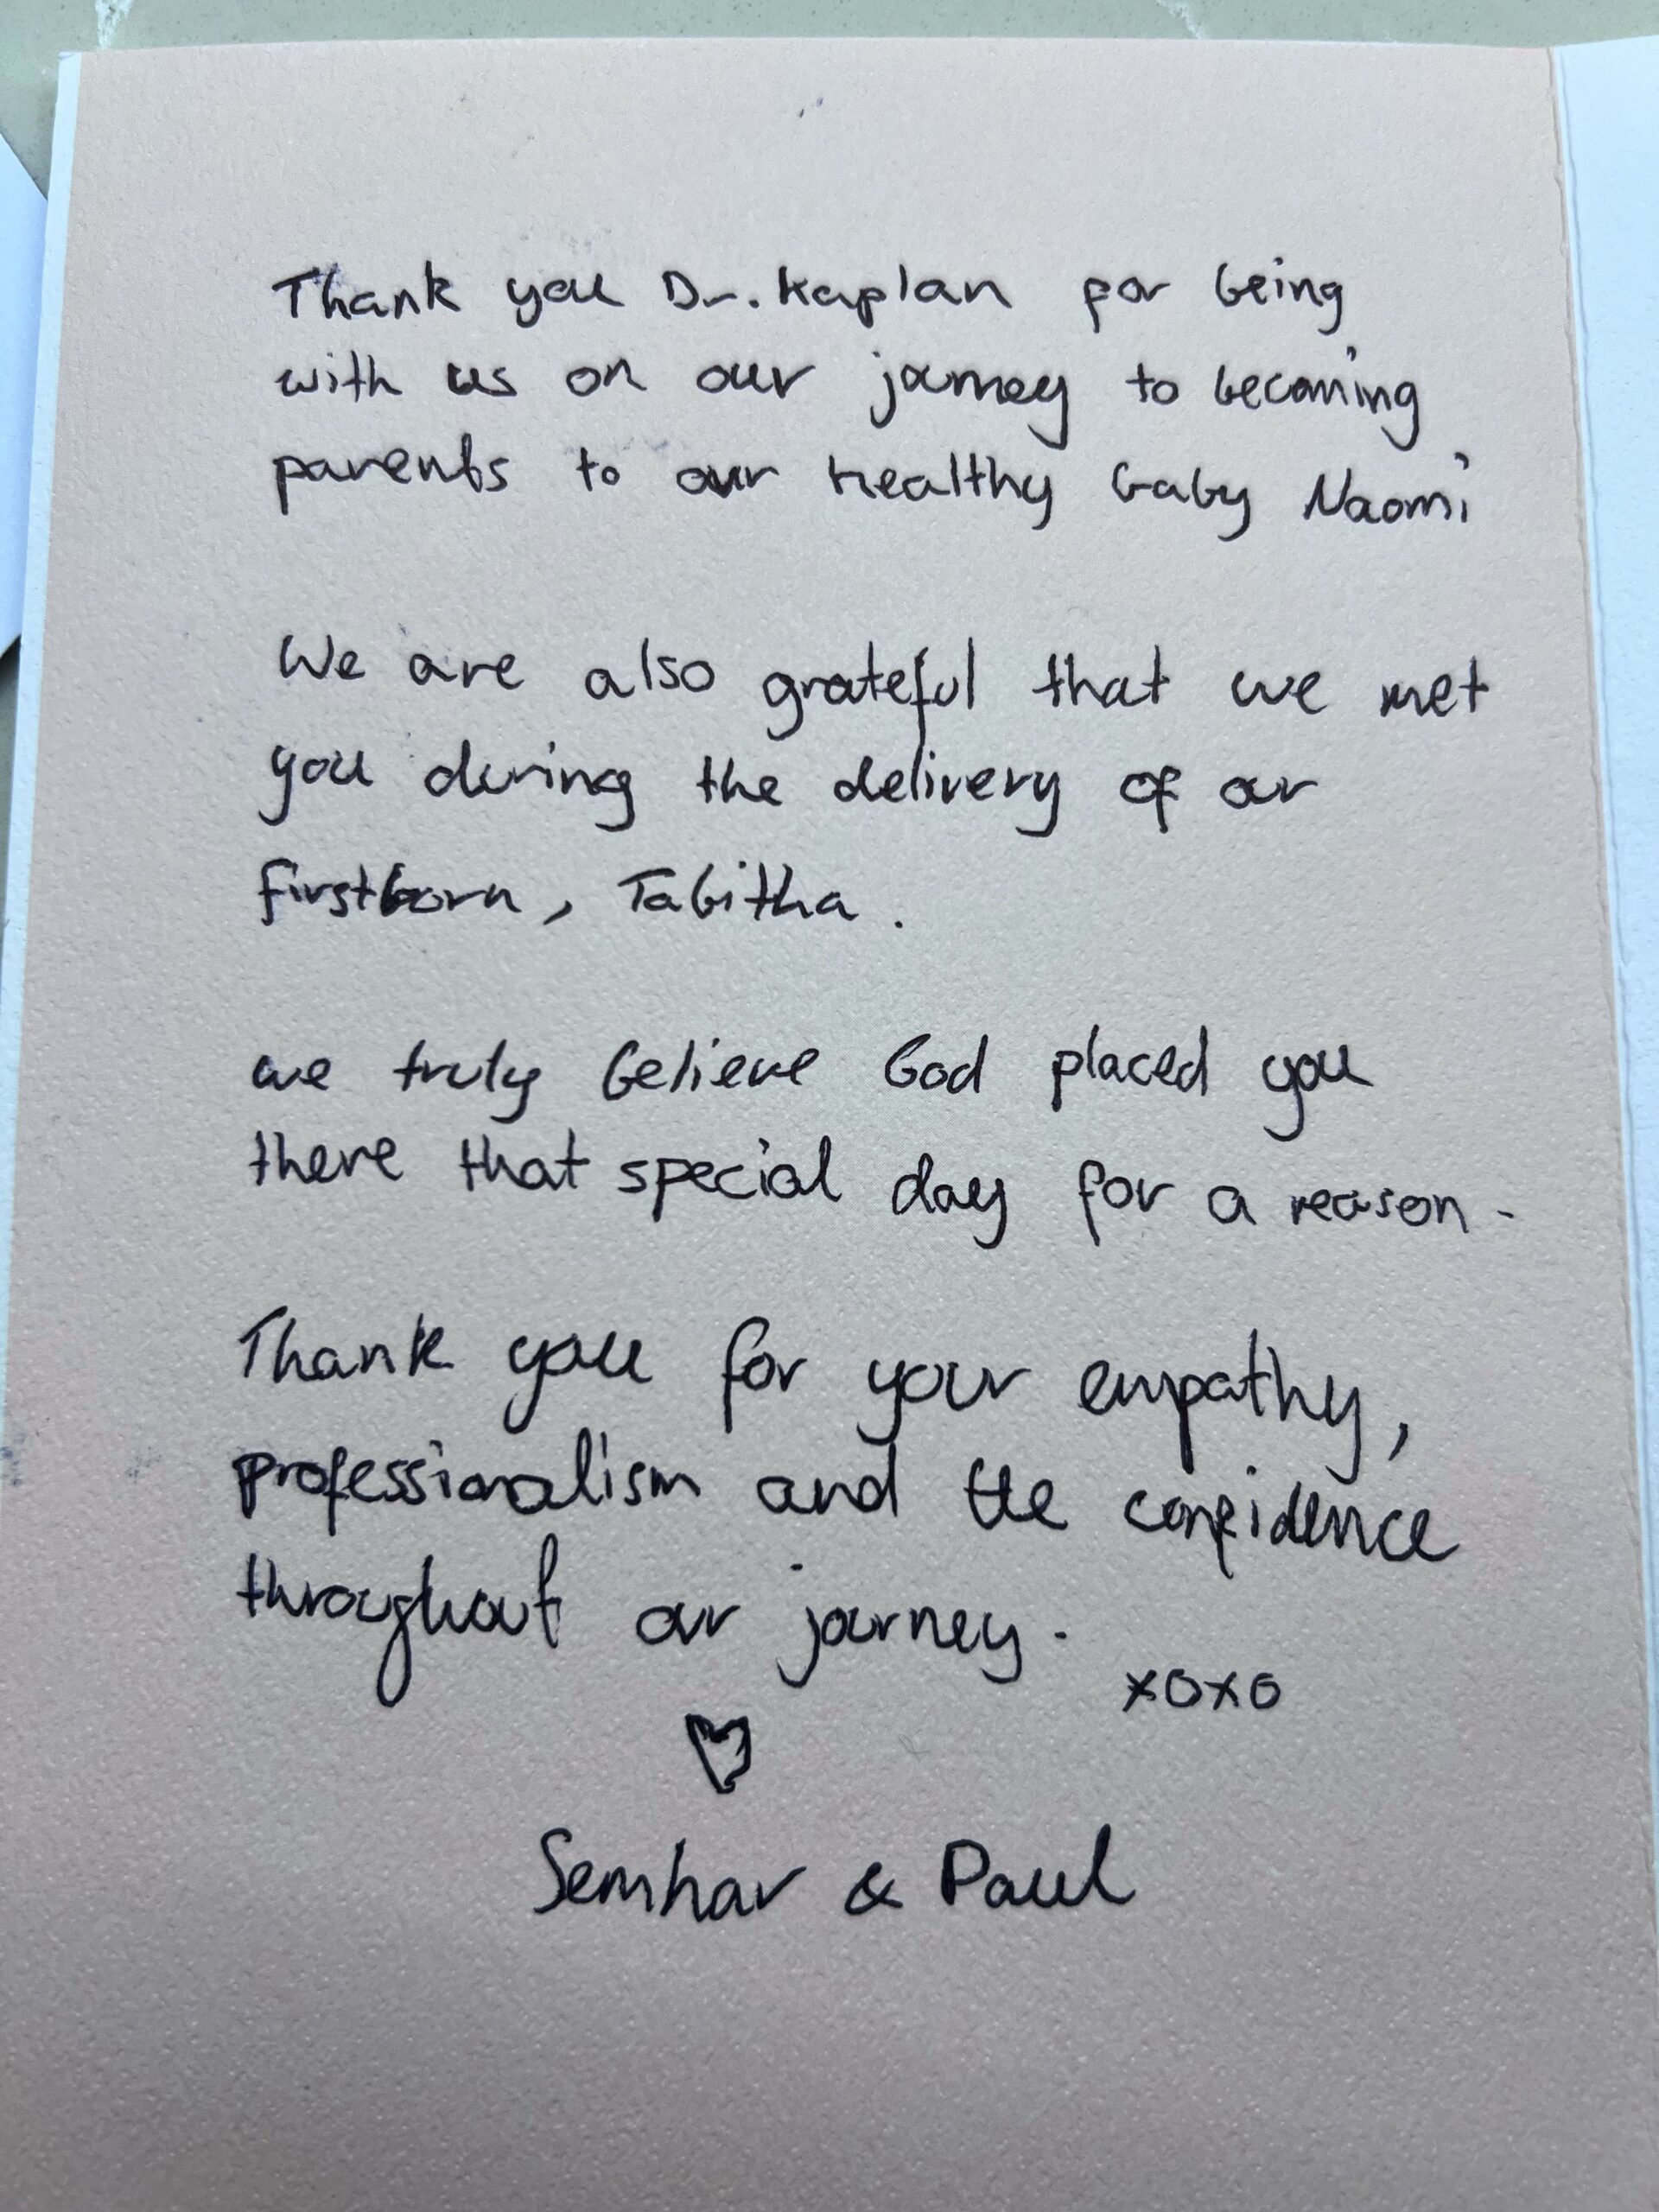 Thank you Dr. Kaplan for being
with us on our journey to becoming
parents to our healthy baby Naomi
We are also grateful that we met
you during the delivery of our
firstborn, Tabitha.
we truly believe God placed you
there that special day for a reason.
Thank you for your empathy,
professionalism and the confidence
throughout our journey.
xoxo
Semhar & Paul